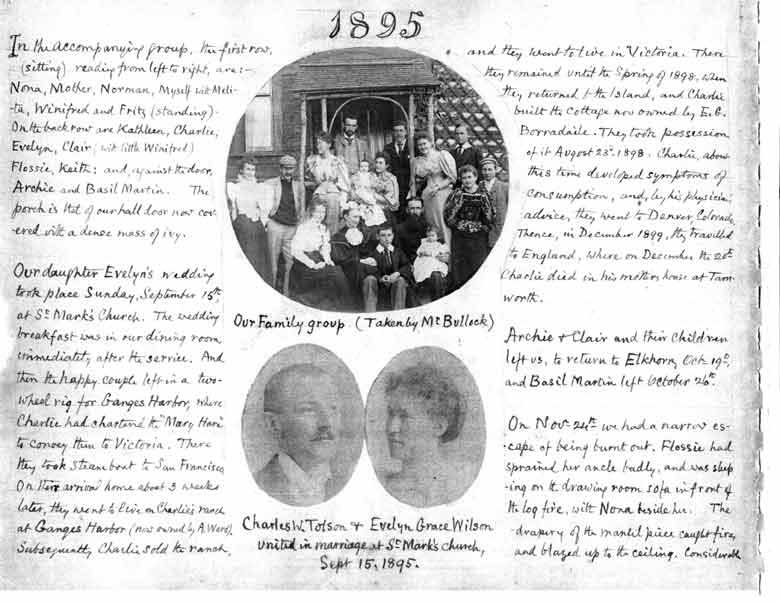 1895
In the accompanying group, the first row,
(sitting) reading from left to right, are:-
Nona, Mother, Norman, Myself with Meli-
ta, Winifred and Fritz (standing).
On the back row are Kathleen, Charlie,
Evelyn, Clair (with little Winifred)
Flossie, Keith: and, against the door,
Archie and Basil Martin. The
porch is that of our hall door now cov-
ered with a dense mass of ivy.
Our daughter Evelyn's wedding
took place Sunday, September 15th,
at St Mark's Church. The wedding
breakfast was in our dining room
immediately after the service. And
then the happy couple left in a two-
wheel rig for Ganges Harbor, where
Charlie had chartered the "Mary Hare"
to convey them to Victoria. There
they took steamboat to San Francisco
On their arrival home about 3 weeks
later, they went to live on Charlie's ranch
at Ganges Harbor (now owned by A. Ward).
Subsequently Charlie sold the ranch,
Our Family group. (Taken by Mr Bullock)
Charles W. Tolson & Evelyn Grace Wilson
united in marriage at St Mark's church,
Sept 15, 1895.
and they went to live in Victoria. There
they remained until the Spring of 1898, when
they returned to the Island, and Charlie
built the Cottage now owned by E.G.
Borradaile. They took possession
of it August 23d. 1898. Charlie, about
this time developed symptoms of
consumption, and, by his physician's
advice, they went to Denver Colorado,
Thence, in December 1899, they travelled
to England, where on December the 20th
Charlie died in his mother's house at Tam
worth.
Archie & Clair and their children
left us, to return to Elkhorn, Oct. 19th,
and Basil Martin left October 26th.
On Nov. 24th we had a narrow es-
-cape of being burnt out. Flossie had
sprained her ancle badly, and was sleep
-ing on the drawing room sofa in front of
the log fire, with Nona beside her. The
drapery of the mantel piece caught fire,
and blazed up to the ceiling. Considerable